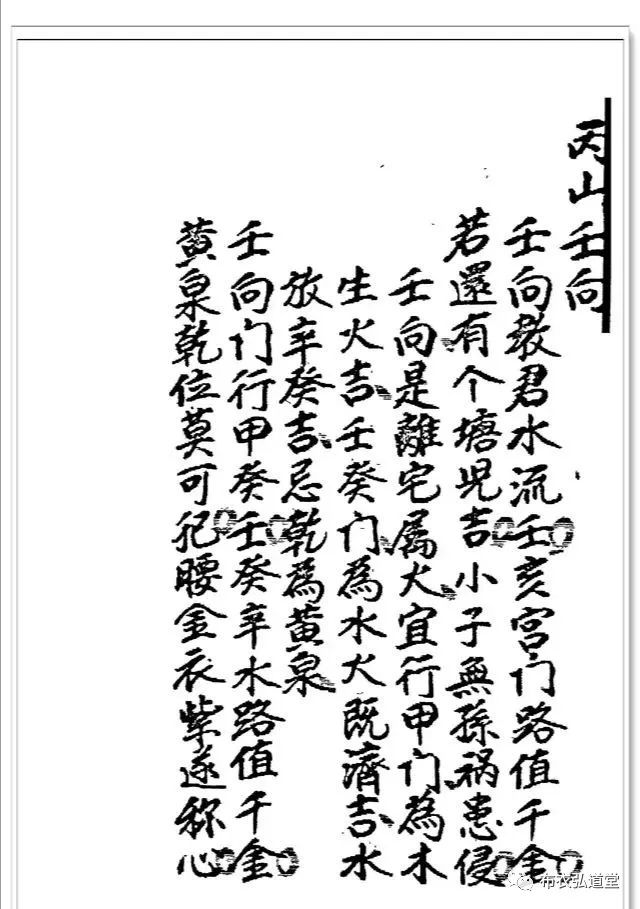 丙山壬向
壬向教君水流壬亥宫门路值千金
若還有个塘児吉小子無孫祸患侵
壬向是離宅属火宜行甲门為木
生火吉壬癸门為水火既濟吉水
放辛癸吉忌乾為黄泉
壬向门行甲癸壬癸辛水路值千金
黄泉乾位莫可犯腰金衣紫遂称心
布衣弘道堂